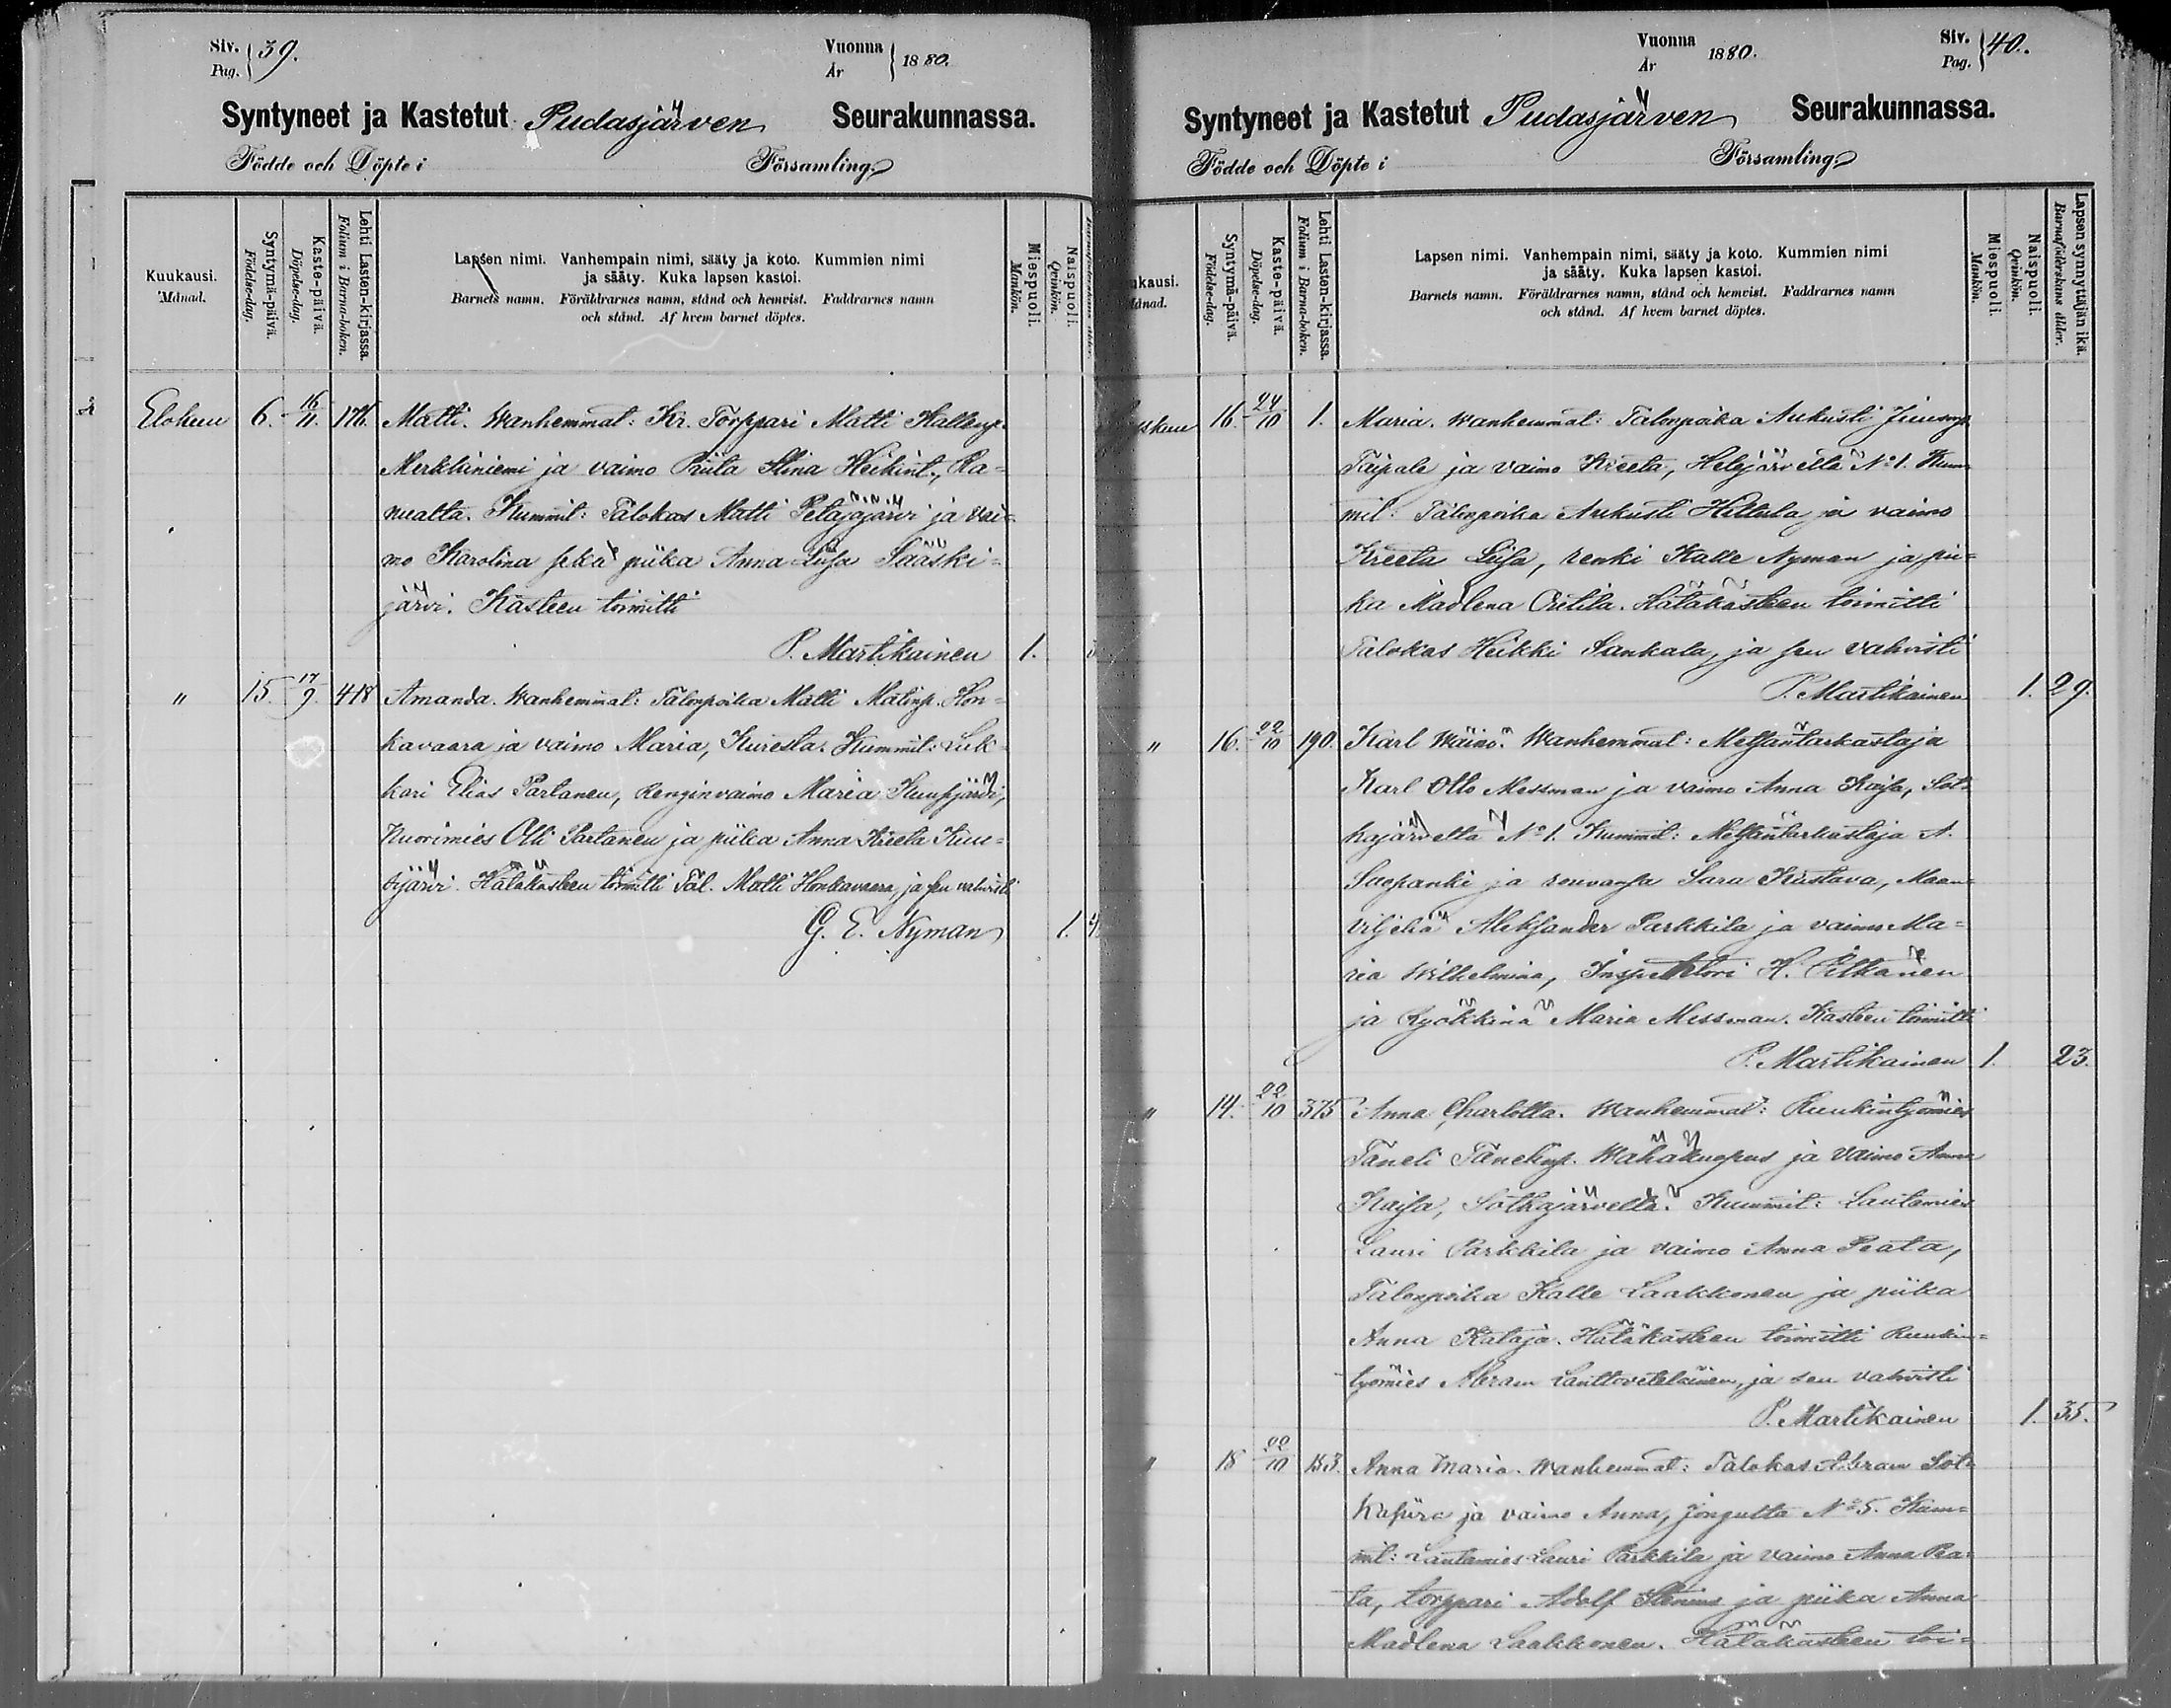 Siv. 39.
Pag.
Vuonna 1880.
År
Syntyneet ja Kastetut Pudasjärven Seurakunnassa.
Födde och Döpte i Församling.
Kuukausi.
Månad.
Syntymä-päivä.
Födelse-dag.
Kaste-päivä.
Döpelse-dag.
Lehti Lasten-kirjassa.
Folium i Barna-boken.
Lapsen nimi. Vanhempain nimi, sääty ja koto. Kummien nimi
ja sääty. Kuka lapsen kastoi.
Barnets namn. Föräldrarnes namn, stånd och hemvist. Faddrarnes namn
och stånd. Af hvem barnet döptes.
Miespuoli.
Mankön.
Naispuoli.
Qvinkön.
Elokuu 6. 16/11. 176. Matti. Wanhemmat: Kr. Torppari Matti Kallenp.
Merkkiniemi ja vaimo Priita Stina Heikint., Ra=
nualta. Kummit: Talokas Matti Petäjäjärvi ja vai=
mo Karolina sekä piika Anna Liisa Sääski=
järvi. Kasteen toimitti
P. Martikainen 1.
" 15. 17/9. 418 Amanda. Wanhemmat: Talonpoika Matti Matinp. Hon=
kavaara ja vaimo Maria, Kuresta. Kummit: Luk=
kari Elias Partanen, Renginvaimo Maria Kuusijärvi,
Nuorimies Olli Partanen ja piika Anna Kreeta Kuu=
sijärvi. Hätäkasteen toimitti Tal. Matti Honkavaara, ja sen vahvisti
G. E. Nyman 1.
Vuonna 1880.
År
Siv. 40.
Pag.
Syntyneet ja Kastetut Pudasjärven Seurakunnassa.
Födde och Döpte i Församling.
ukausi.
Månad.
Syntymä-päivä.
Födelse-dag.
Kaste-päivä.
Döpelse-dag.
Lehti Lasten-kirjassa.
Folium i Barna-boken.
Lapsen nimi. Vanhempain nimi, sääty ja koto. Kummien nimi
ja sääty. Kuka lapsen kastoi.
Barnets namn. Föräldrarnes namn, stånd och hemvist. Faddrarnes namn
och stånd. Af hvem barnet döptes.
Miespuoli.
Mankön.
Naispuoli.
Qvinkön.
Lapsen synnyttäjän ikä.
Barnaföderskans ålder.
yskuu 16. 24/10 1. Maria. Wanhemmat: Talonpoika Aukusti
Taipale ja vaimo Kreeta, Hetejärveltä No 1. Kum
mit: Talonpoika Aukusti Hiltula ja vaimo
Kreeta Liisa, renki Kalle Nyman ja pii=
ka Madlena Outila. Hätäkasteen toimitti
Talokas Heikki Sankala, ja sen vahvisti
P. Martikainen 1. 29.
" 16. 22/10 190. Karl Wäinö. Wanhemmat: Metsäntarkastaja
Karl Otto Messman ja vaimo Anna Kaisa, Sot=
kajärveltä No 1. Kummit: Metsäntarkastaja A.
ja rouvansa Sara Kustava, Maan=
viljeliä Aleksander Parkkila ja vaimo Ma=
ria Wilhelmina, Inspehtori H. Pitkänen
ja Ryökkinä Maria Messman. Kasteen toimitti
P. Martikainen 1. 23.
" 14. 22/10 375 Anna Charlotta. Wanhemmat: Ruukintyömies
Taneli Tanelinp. Wähäkuopus ja vaimo Anna
Kaisa, Sotkajärveltä. Kummit: Lautamies
Lauri Parkkila ja vaimo Anna Peata,
Talonpoika Kalle Laakkonen ja piika
Anna Kataja. Hätäkasteen toimitti Ruukin=
työmies Abram Lanttoveteläinen, ja sen vahvisti
P. Martikainen 1. 35.
" 18 22/10 153. Anna Maria. Wanhemmat: Talokas Abram Sot=
kasiira ja vaimo Anna, Jongulta No 5. Kum=
mit: Lautamies Lauri Parkkila ja vaimo Anna Pea=
ta, torppari Adolf Stenius ja piika Anna
Madlena Laakkonen. Hätäkasteen toi=